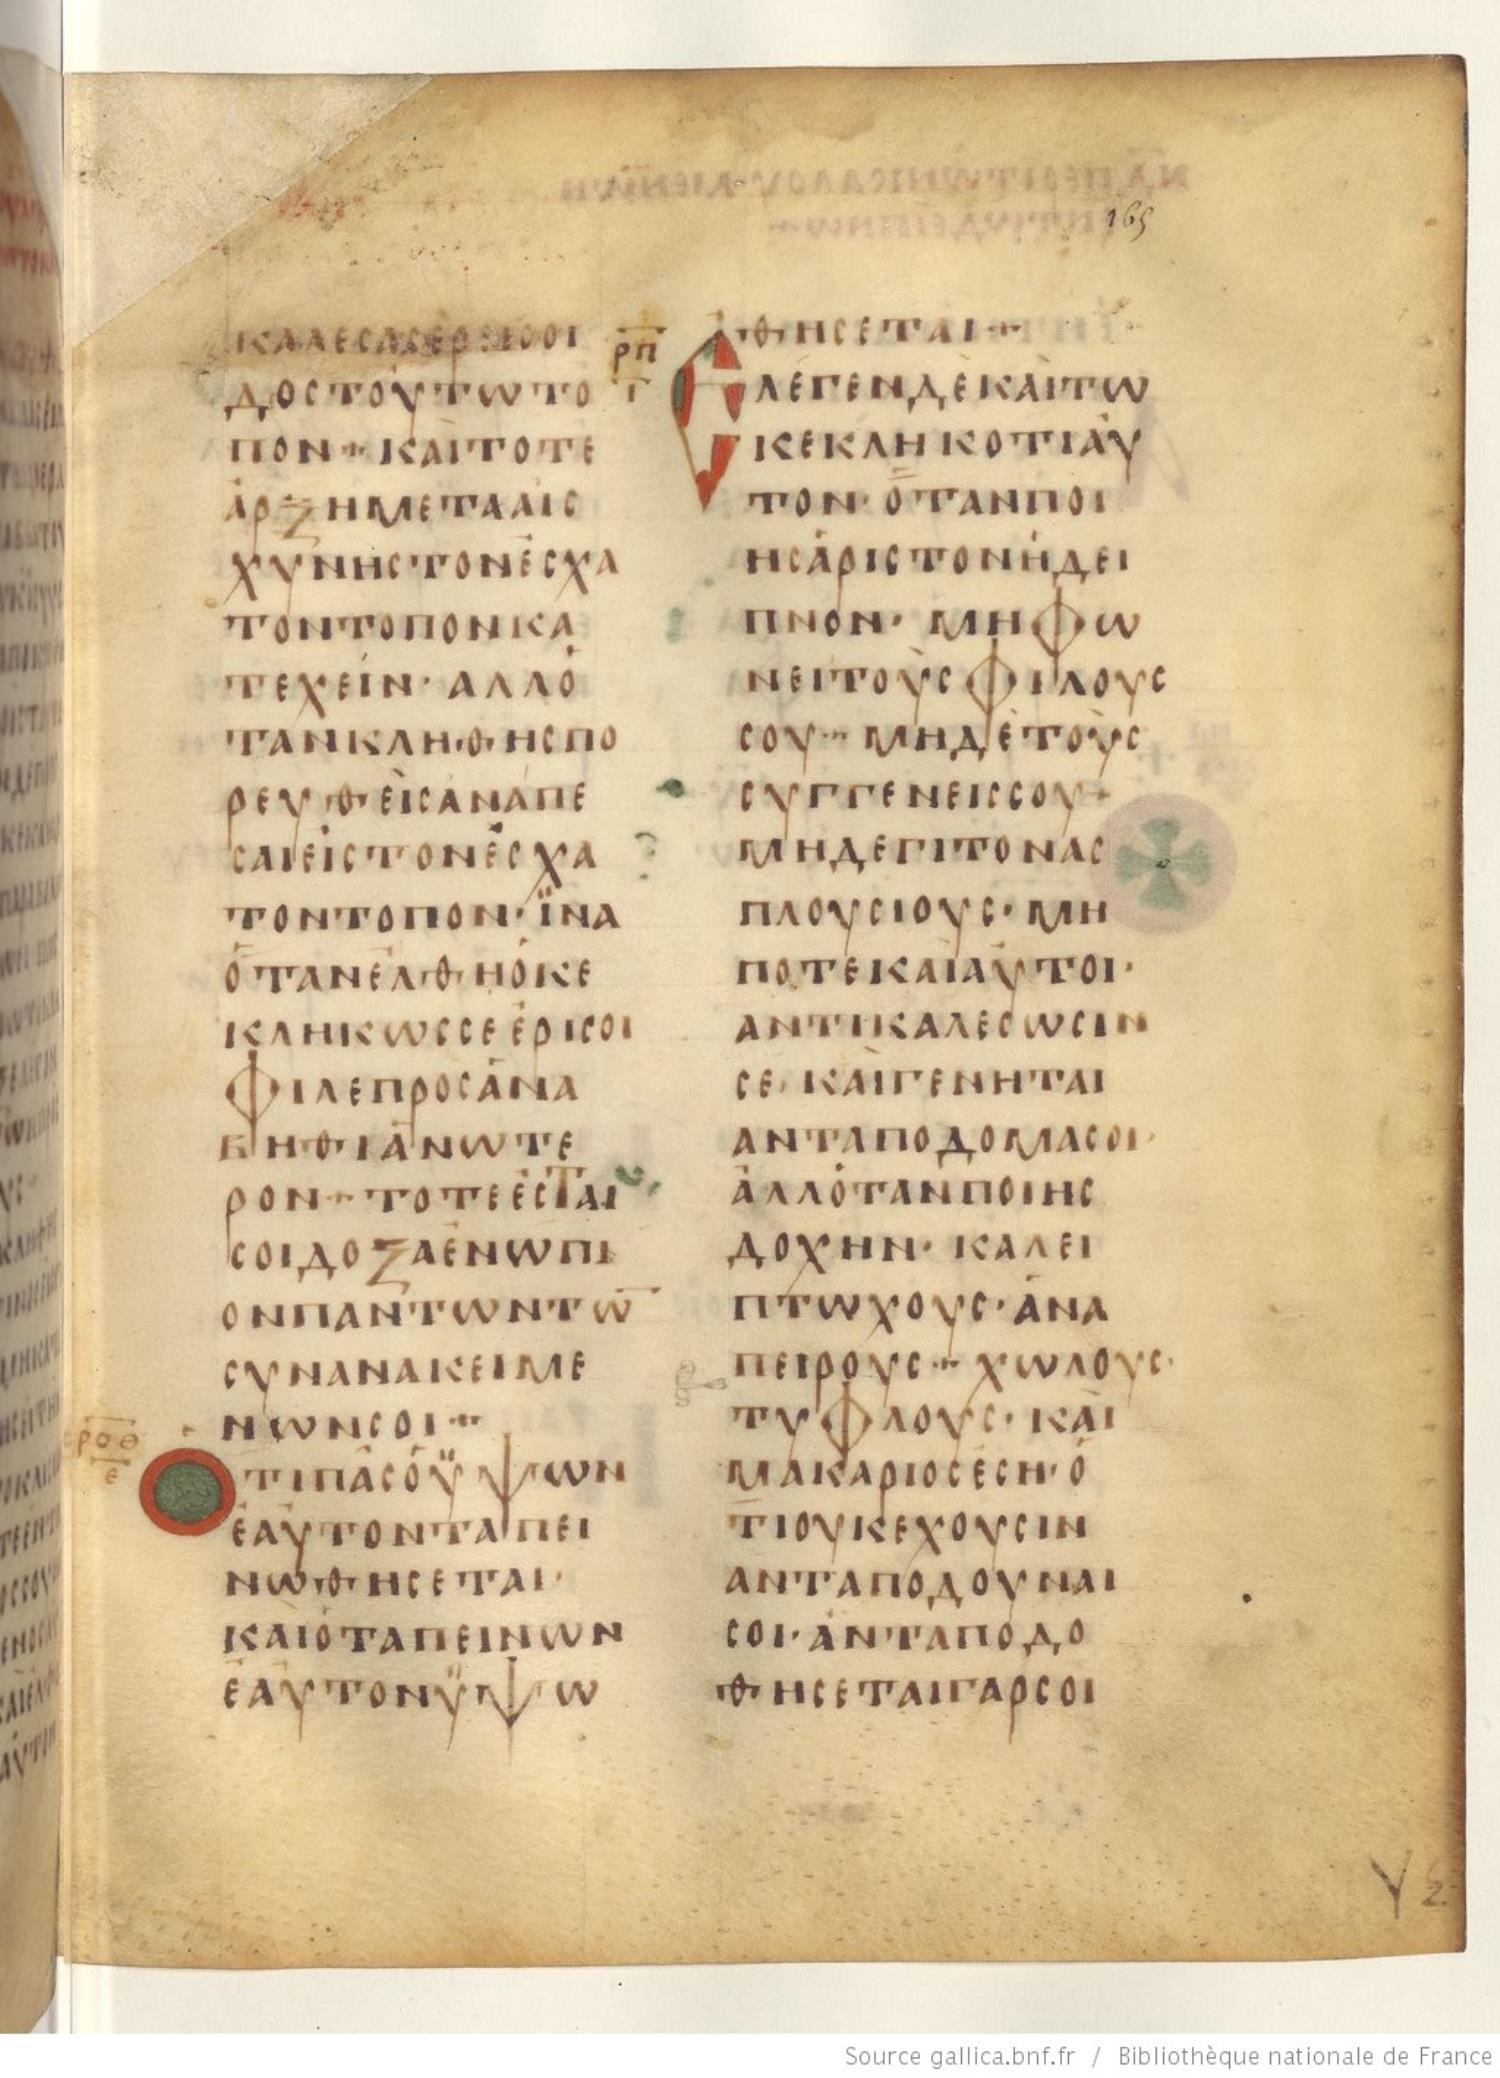 165
ΚΑΛΕCΑCΕΡΕΙCΟΙ
ΔΟCΤΟΥΤΩΤΟ
ΠΟΝ· ΚΑΙΤΟΤΕ
ΑΡΞΗΜΕΤΑΑΙC
ΧΥΝΗCΤΟΝΕCΧΑ
ΤΟΝΤΟΠΟΝΚΑ
ΤΕΧΕΙΝ· ΑΛΛΟ
ΤΑΝΚΛΗΘΗCΠΟ
ΡΕΥΘΕΙCΑΝΑΠΕ
CΑΙΕΙCΤΟΝΕCΧΑ
ΤΟΝΤΟΠΟΝ· ΪΝΑ
ΟΤΑΝΕΛΘΗΟΚΕ
ΚΛΗΚΩCCΕΕΡΙCΟΙ
ΦΙΛΕΠΡΟCΑΝΑ
ΒΗΘΙΑΝΩΤΕ
ΡΟΝ· ΤΟΤΕΕCΤΑΙ
CΟΙΔΟΞΑΕΝΩΠΙ
ΟΝΠΑΝΤΩΝΤΩ̅
CΥΝΑΝΑΚΕΙΜΕ
ΝΩΝCΟΙ··
ΡΟΘ
Ε
ΟΤΙΠΑCΟΫΨΩΝ
ΕΑΥΤΟΝΤΑΠΕΙ
ΝΩΘΗCΕΤΑΙ·
ΚΑΙΟΤΑΠΕΙΝΩΝ
ΕΑΥΤΟΝΫΨΩ
ΘΗCΕΤΑΙ··
ΡΠ
Γ
ΕΛΕΓΕΝΔΕΚΑΙΤΩ
ΚΕΚΛΗΚΟΤΙΑΥ
ΤΟΝ· ΟΤΑΝΠΟΙ
ΗCΑΡΙCΤΟΝΗΔΕΙ
ΠΝΟΝ· ΜΗΦΩ
ΝΕΙΤΟΥCΦΙΛΟΥC
CΟΥ·· ΜΗΔΕΤΟΥC
CΥΓΓΕΝΕΙCCΟΥ·
ΜΗΔΕΓΙΤΟΝΑC
ΠΛΟΥCΙΟΥC· ΜΗ
ΠΟΤΕΚΑΙΑΥΤΟΙ·
ΑΝΤΙΚΑΛΕCΩCΙΝ
CΕ· ΚΑΙΓΕΝΗΤΑΙ
ΑΝΤΑΠΟΔΟΜΑCΟΙ·
ΑΛΛΟΤΑΝΠΟΙΗC
ΔΟΧΗΝ· ΚΑΛΕΙ
ΠΤΩΧΟΥC· ΑΝΑ
ΠΕΙΡΟΥC·· ΧΩΛΟΥC·
ΤΥΦΛΟΥC· ΚΑΙ
ΜΑΚΑΡΙΟCΕCΗ· Ο
ΤΙΟΥΚΕΧΟΥCΙΝ
ΑΝΤΑΠΟΔΟΥΝΑΙ
CΟΙ· ΑΝΤΑΠΟΔΟ
ΘΗCΕΤΑΙΓΑΡCΟΙ
Source gallica.bnf.fr / Bibliothèque nationale de France